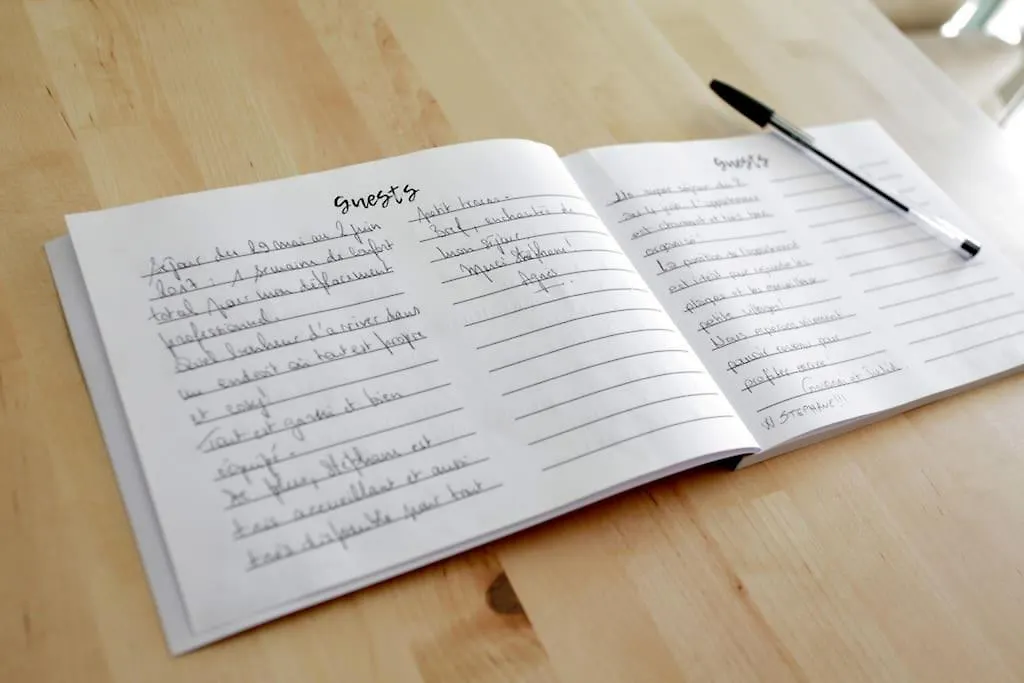 guests
Séjour du 29 mai au 2 juin
2017 : 1 semaine de confort
total pour mon déplacement
professionnel.
Quel bonheur d'arriver dans
un endroit où tout est propre
et cosy!
Tout est garni et bien
équipé.
De plus, Stéphane est
très accueillant et aussi
très disponible pour tout
petit tracas.
Bref, enchantée de
mon séjour.
Merci Stéphane!
Agnès.
guests
Un super séjour du 2
au 4 juin. L'appartement
est charmant et tout bien
organisé.
La position de l'appartement
est idéale pour rejoindre les
plages et les merveilleux
petits villages!
Nous espérons vivement
pouvoir revenir pour
profiter encore
et
W STEPHANE!!!